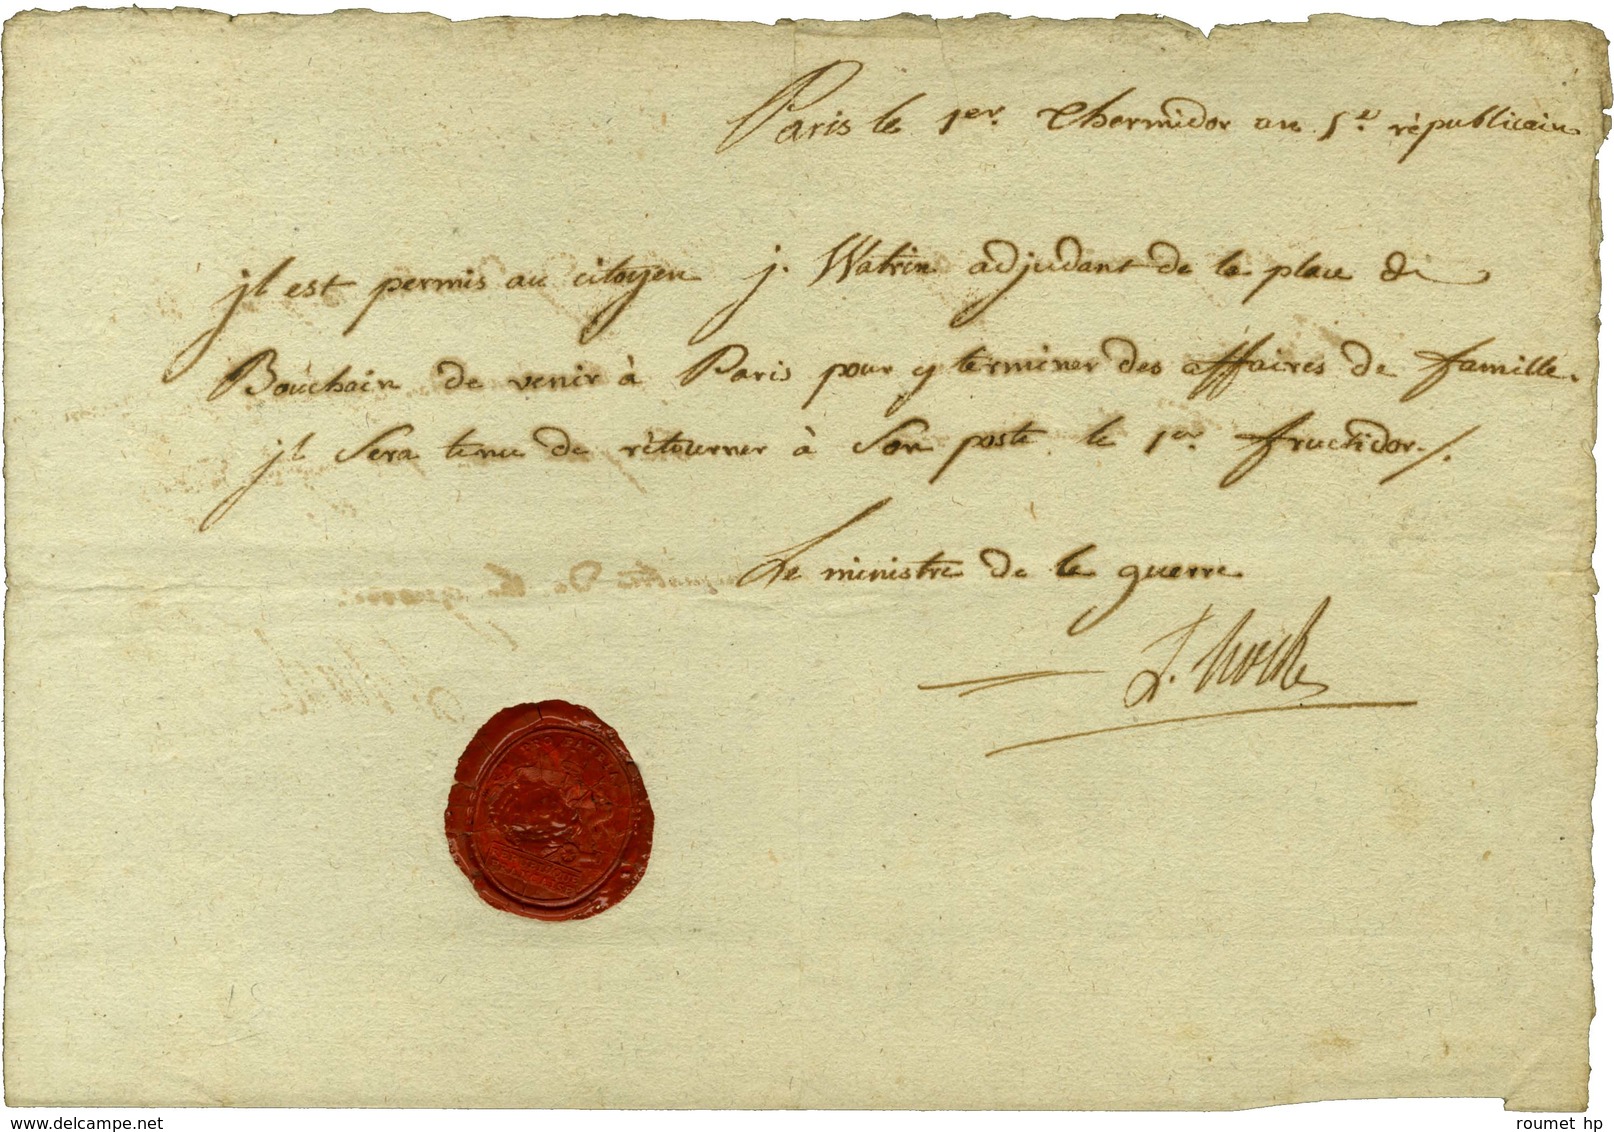 Paris le 1er. Thermidor an 5.e républicain
jl est permis au citoyen j. Watrin adjudant de la place de
Bouchain de venir à Paris pour y terminer des affaires de famille.
jl sera tenu de rétourner à son poste le 1er fructidor./.
Le ministre de la guerre
L. hoche
PRO PATRIA
www.delcampe.net
roumet hp